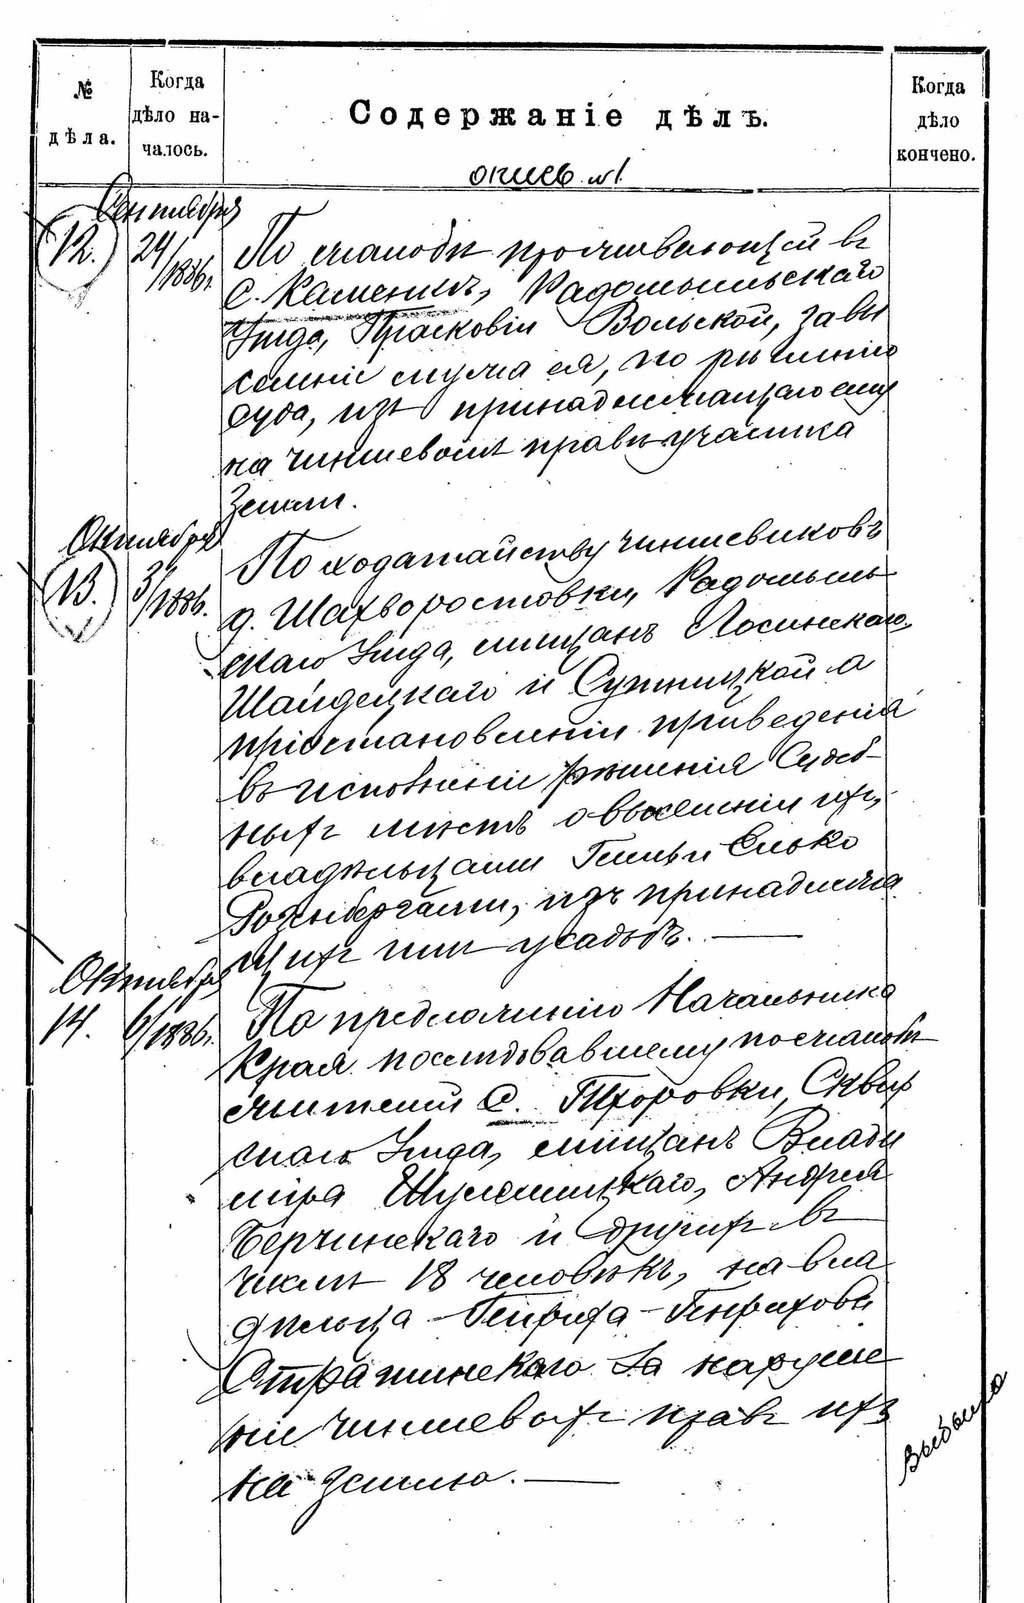 №
дѣла.
Когда
дѣло на-
чалось.
Содержаніе дѣлъ.
Когда
дѣло
кончено.
опись №1
Сентября
12. 24/1886г.
По жалобѣ проживающей въ
с. Каменкѣ, Радомысльскаго
Уѣзда, Прасковіи Вольской, за вы
селеніе мужа ея, по рѣшенію
суда, изъ принадлежащаго ему
на чиншевомъ правѣ участка
земли.
Октября
13. 3/1886.
По ходатайству чиншевиковъ
д. Шахворостовки, Радомысль
скаго Уѣзда, мѣщанъ Лосинскаго,
Шайдецкаго и Сужницкой о
пріостановленіи приведенія
въ исполненіе рѣшенія Судеб-
ныхъ мѣстъ о выселеніи ихъ,
владѣльцами и Елько
Розенбергами, изъ принадлежа
щихъ имъ усадьбъ.
Октября
14. 6/1886г.
По предложенію Начальника
Края послѣдовавшему по жалобѣ
жителей с. Сквир
скаго Уѣзда, мѣщанъ Влади
міра Шулешицкаго, Андрея
Берчинскаго и другихъ въ
числѣ 18 человѣкъ, на вла
дѣльца Гейнриха-Генрихови
Страшинскаго за наруше
ніе чиншевыхъ правъ ихъ
на землю.
Выбыло